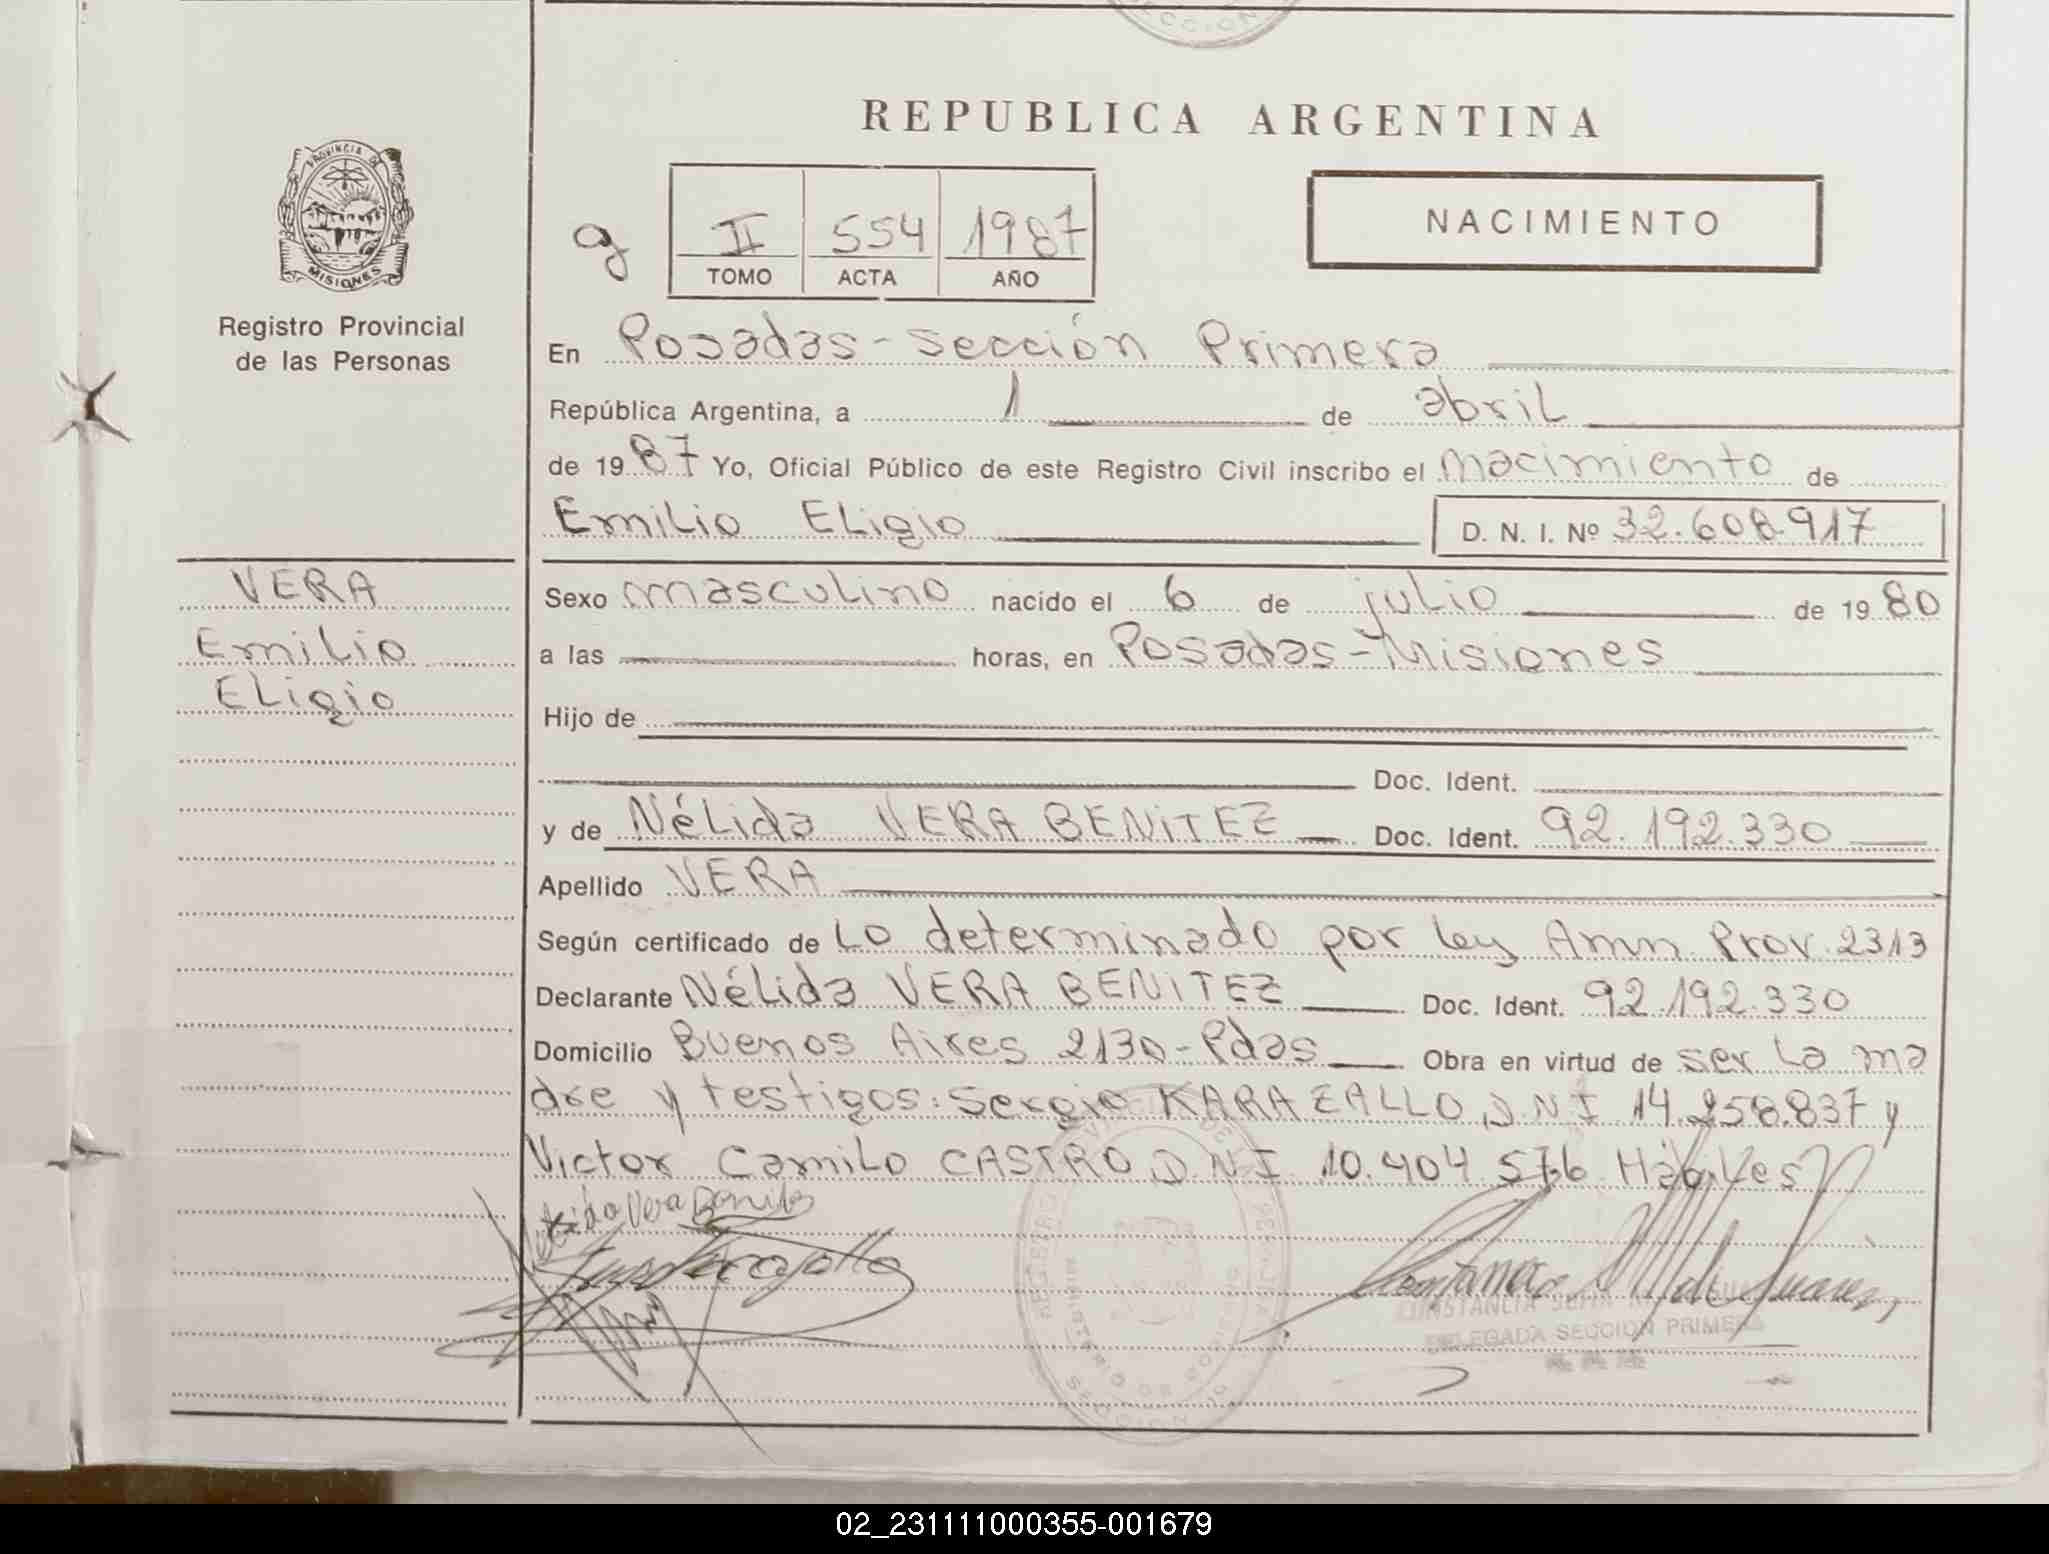 SECCION
REPUBLICA ARGENTINA
PROVINCIA DE
MISIONES
Registro Provincial
de las Personas
II 554 1987
TOMO ACTA AÑO
NACIMIENTO
En Posadas - Sección Primera
República Argentina, a 1 de abril
de 1987 Yo, Oficial Público de este Registro Civil inscribo el nacimiento de
Emilio Eligio D. N. I. Nº 32.608.917
VERA
Emilio
Eligio
Sexo masculino nacido el 6 de julio de 1980
a las horas, en Posadas - Misiones
Hijo de
Doc. Ident.
y de Nélida VERA BENITEZ Doc. Ident. 92.192.330
Apellido VERA
Según certificado de Lo determinado por ley Amn. Prov. 2313
Declarante Nélida VERA BENITEZ Doc. Ident. 92.192.330
Domicilio Buenos Aires 2130 - Pdas Obra en virtud de ser la ma
dre y testigos: Sergio KARAZALLO D.N.I 14.258.837 y
Victor Camilo CASTRO D.N.I. 10.404.576 Hábiles
Vera Benitez
DELEGADA SECCION PRIMERA
02_231111000355-001679